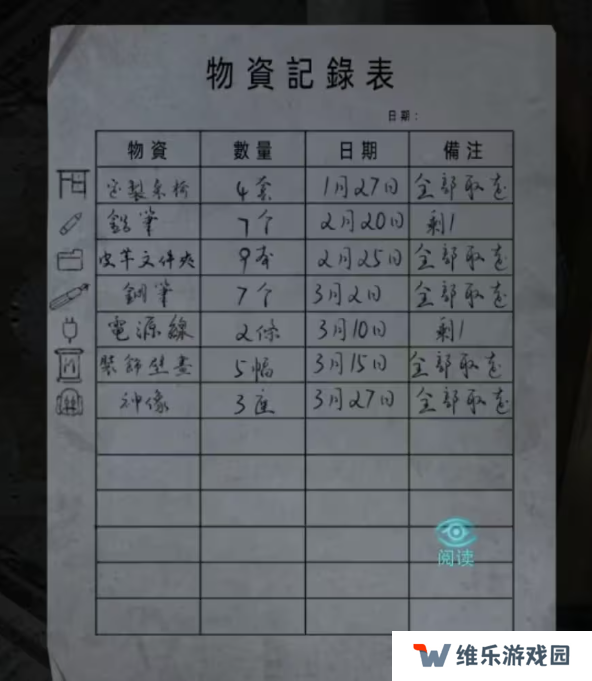 物資記錄表
日期：
物資 數量 日期 備注
定製桌椅 4套 1月27日 全部取走
鉛筆 7个 2月20日 剩1
皮革文件夾 9本 2月25日 全部取走
鋼筆 7个 3月2日 全部取走
電源線 2條 3月10日 剩1
裝飾壁畫 5幅 3月15日 全部取走
神像 3座 3月27日 全部取走
阅读
维乐游戏园